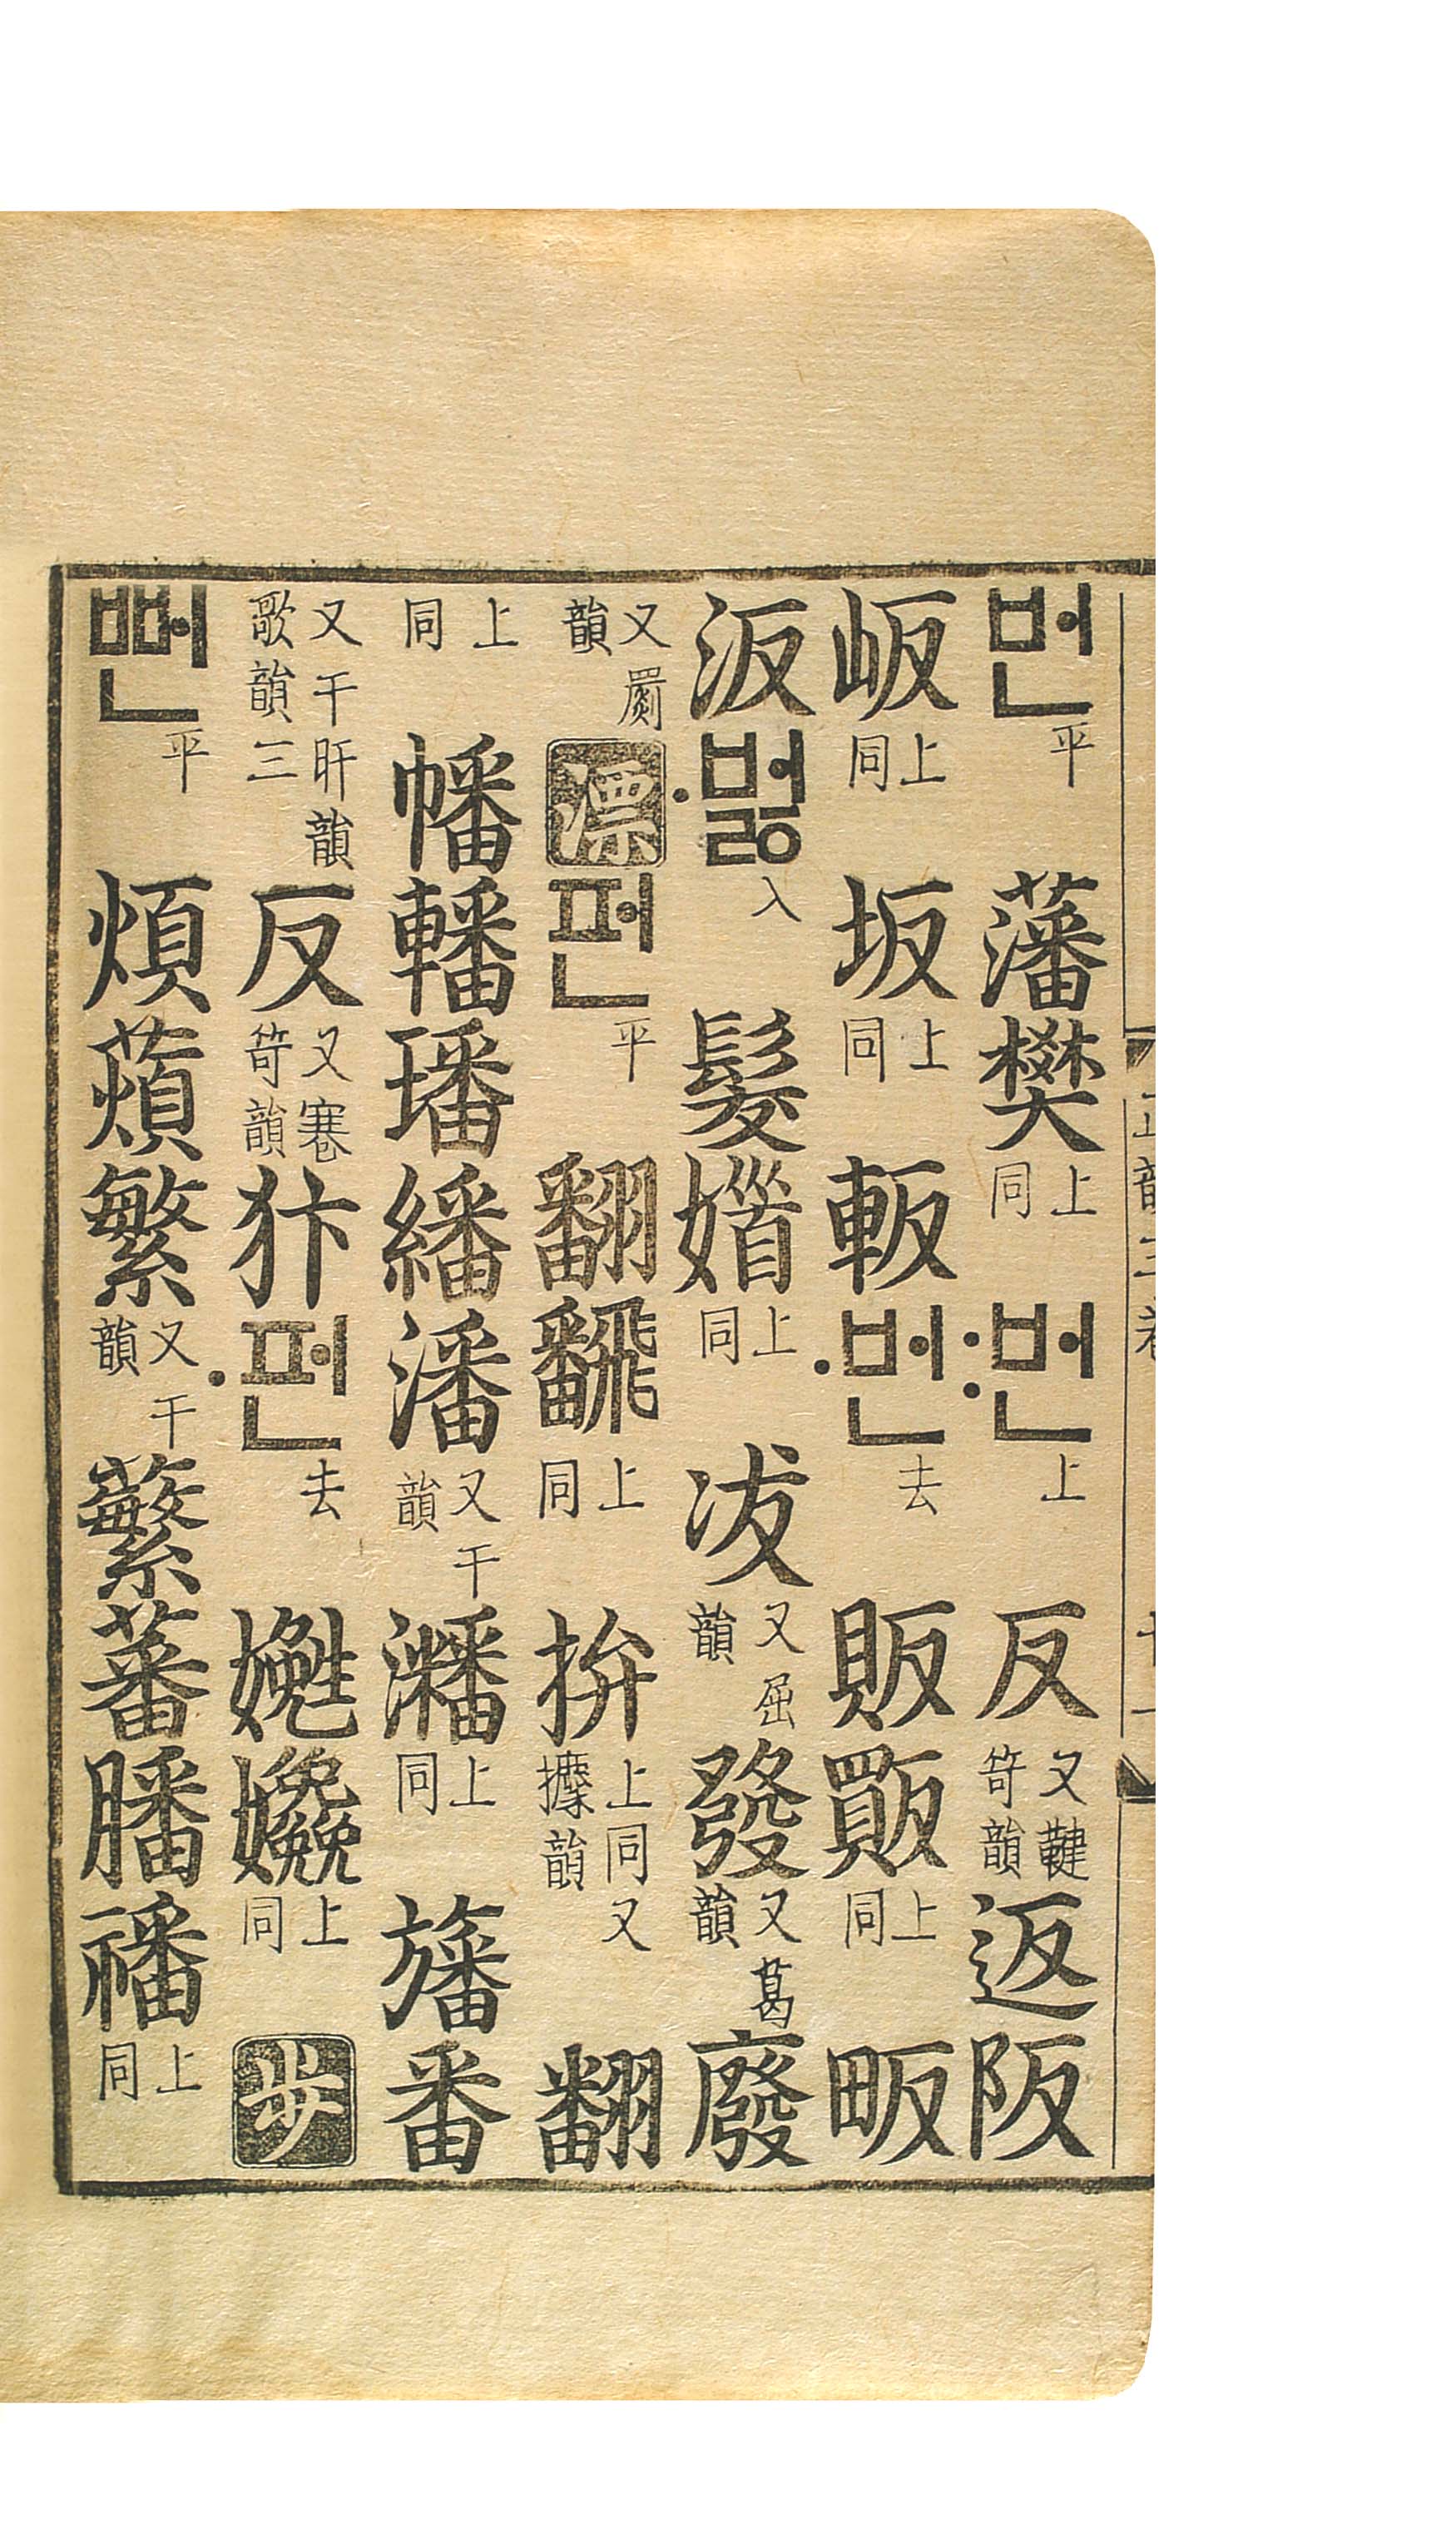 번平藩樊上同:번上反又鞬笴韻返阪
岅上同坂上同䡊·번去販上同畈
汳·버ᇙ入髮上同冹又屈韻發又葛韻廢
又罽韻漂펀平翻飜上同拚上同又攈韻翻
上同幡轓璠繙潘又干韻上同旛番
又干旰韻歌韻三反又寋笴韻犿·펀去嬎上同步
뻔平煩薠繁又干韻蘩蕃膰上同